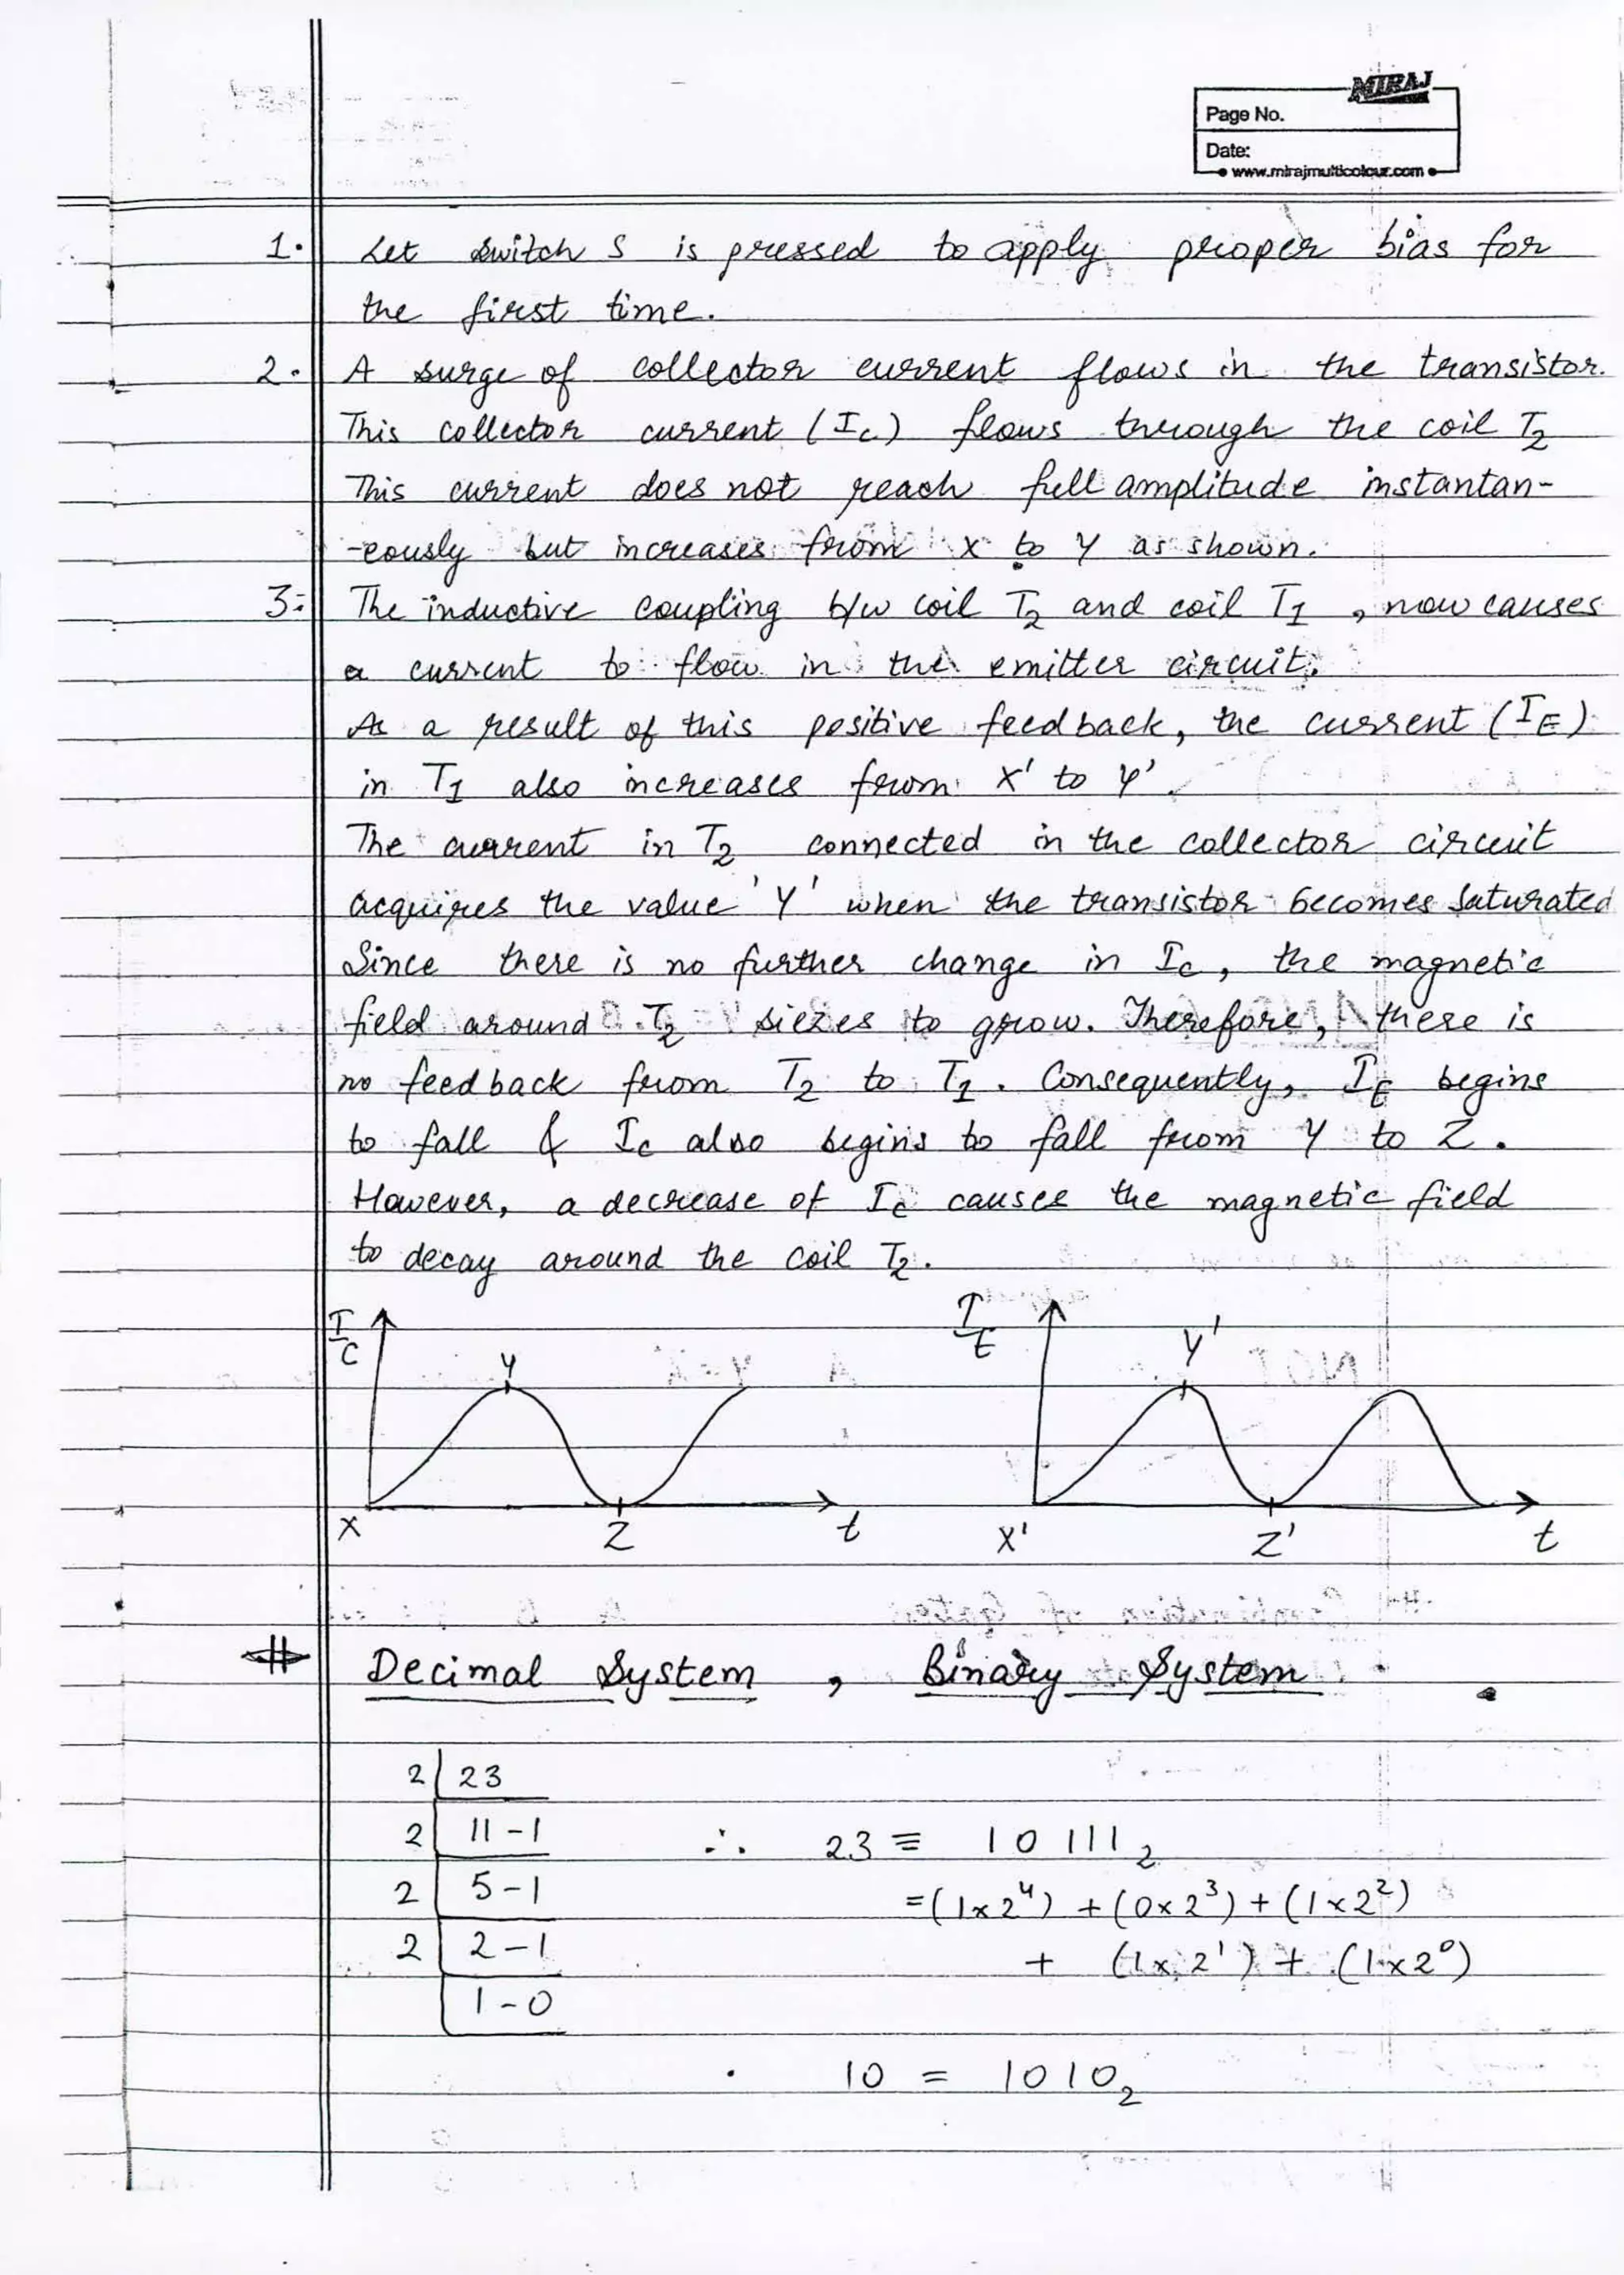 MIRAJ
Page No.
Date:
www.mirajmulticolour.com
1. Let switch S is pressed to apply proper bias for
the first time.
2. A surge of collector current flows in the transistor.
This collector current (Ic) flows through the coil T2
This current does not reach full amplitude instantan-
-eously but increases from X to Y as shown.
3. The inductive coupling b/w coil T2 and coil T1, now causes
a current to flow in the emitter circuit.
As a result of this positive feedback, the current (IE)
in T1 also increases from X' to Y'
The current in T2 connected in the collector circuit
acquires the value 'Y' when the transistor becomes saturated
Since there is no further change in Ic, the magnetic
field around T2 siezes to grow. Therefore, there is
no feedback from T2 to T1. Consequently, IE begins
to fall & Ic also begins to fall from Y to Z.
However, a decrease of Ic causes the magnetic field
to decay around the coil T2.
IC Y X Z t
IE Y' X' Z' t
# Decimal System , Binary System
2 23
2 11-1 ∴ 23 ≡ 10111₂
2 5-1 =(1×2⁴) +(0×2³)+(1×2²)
2 2-1 + (1×2¹) + (1×2⁰)
1-0
. 10 = 1010₂